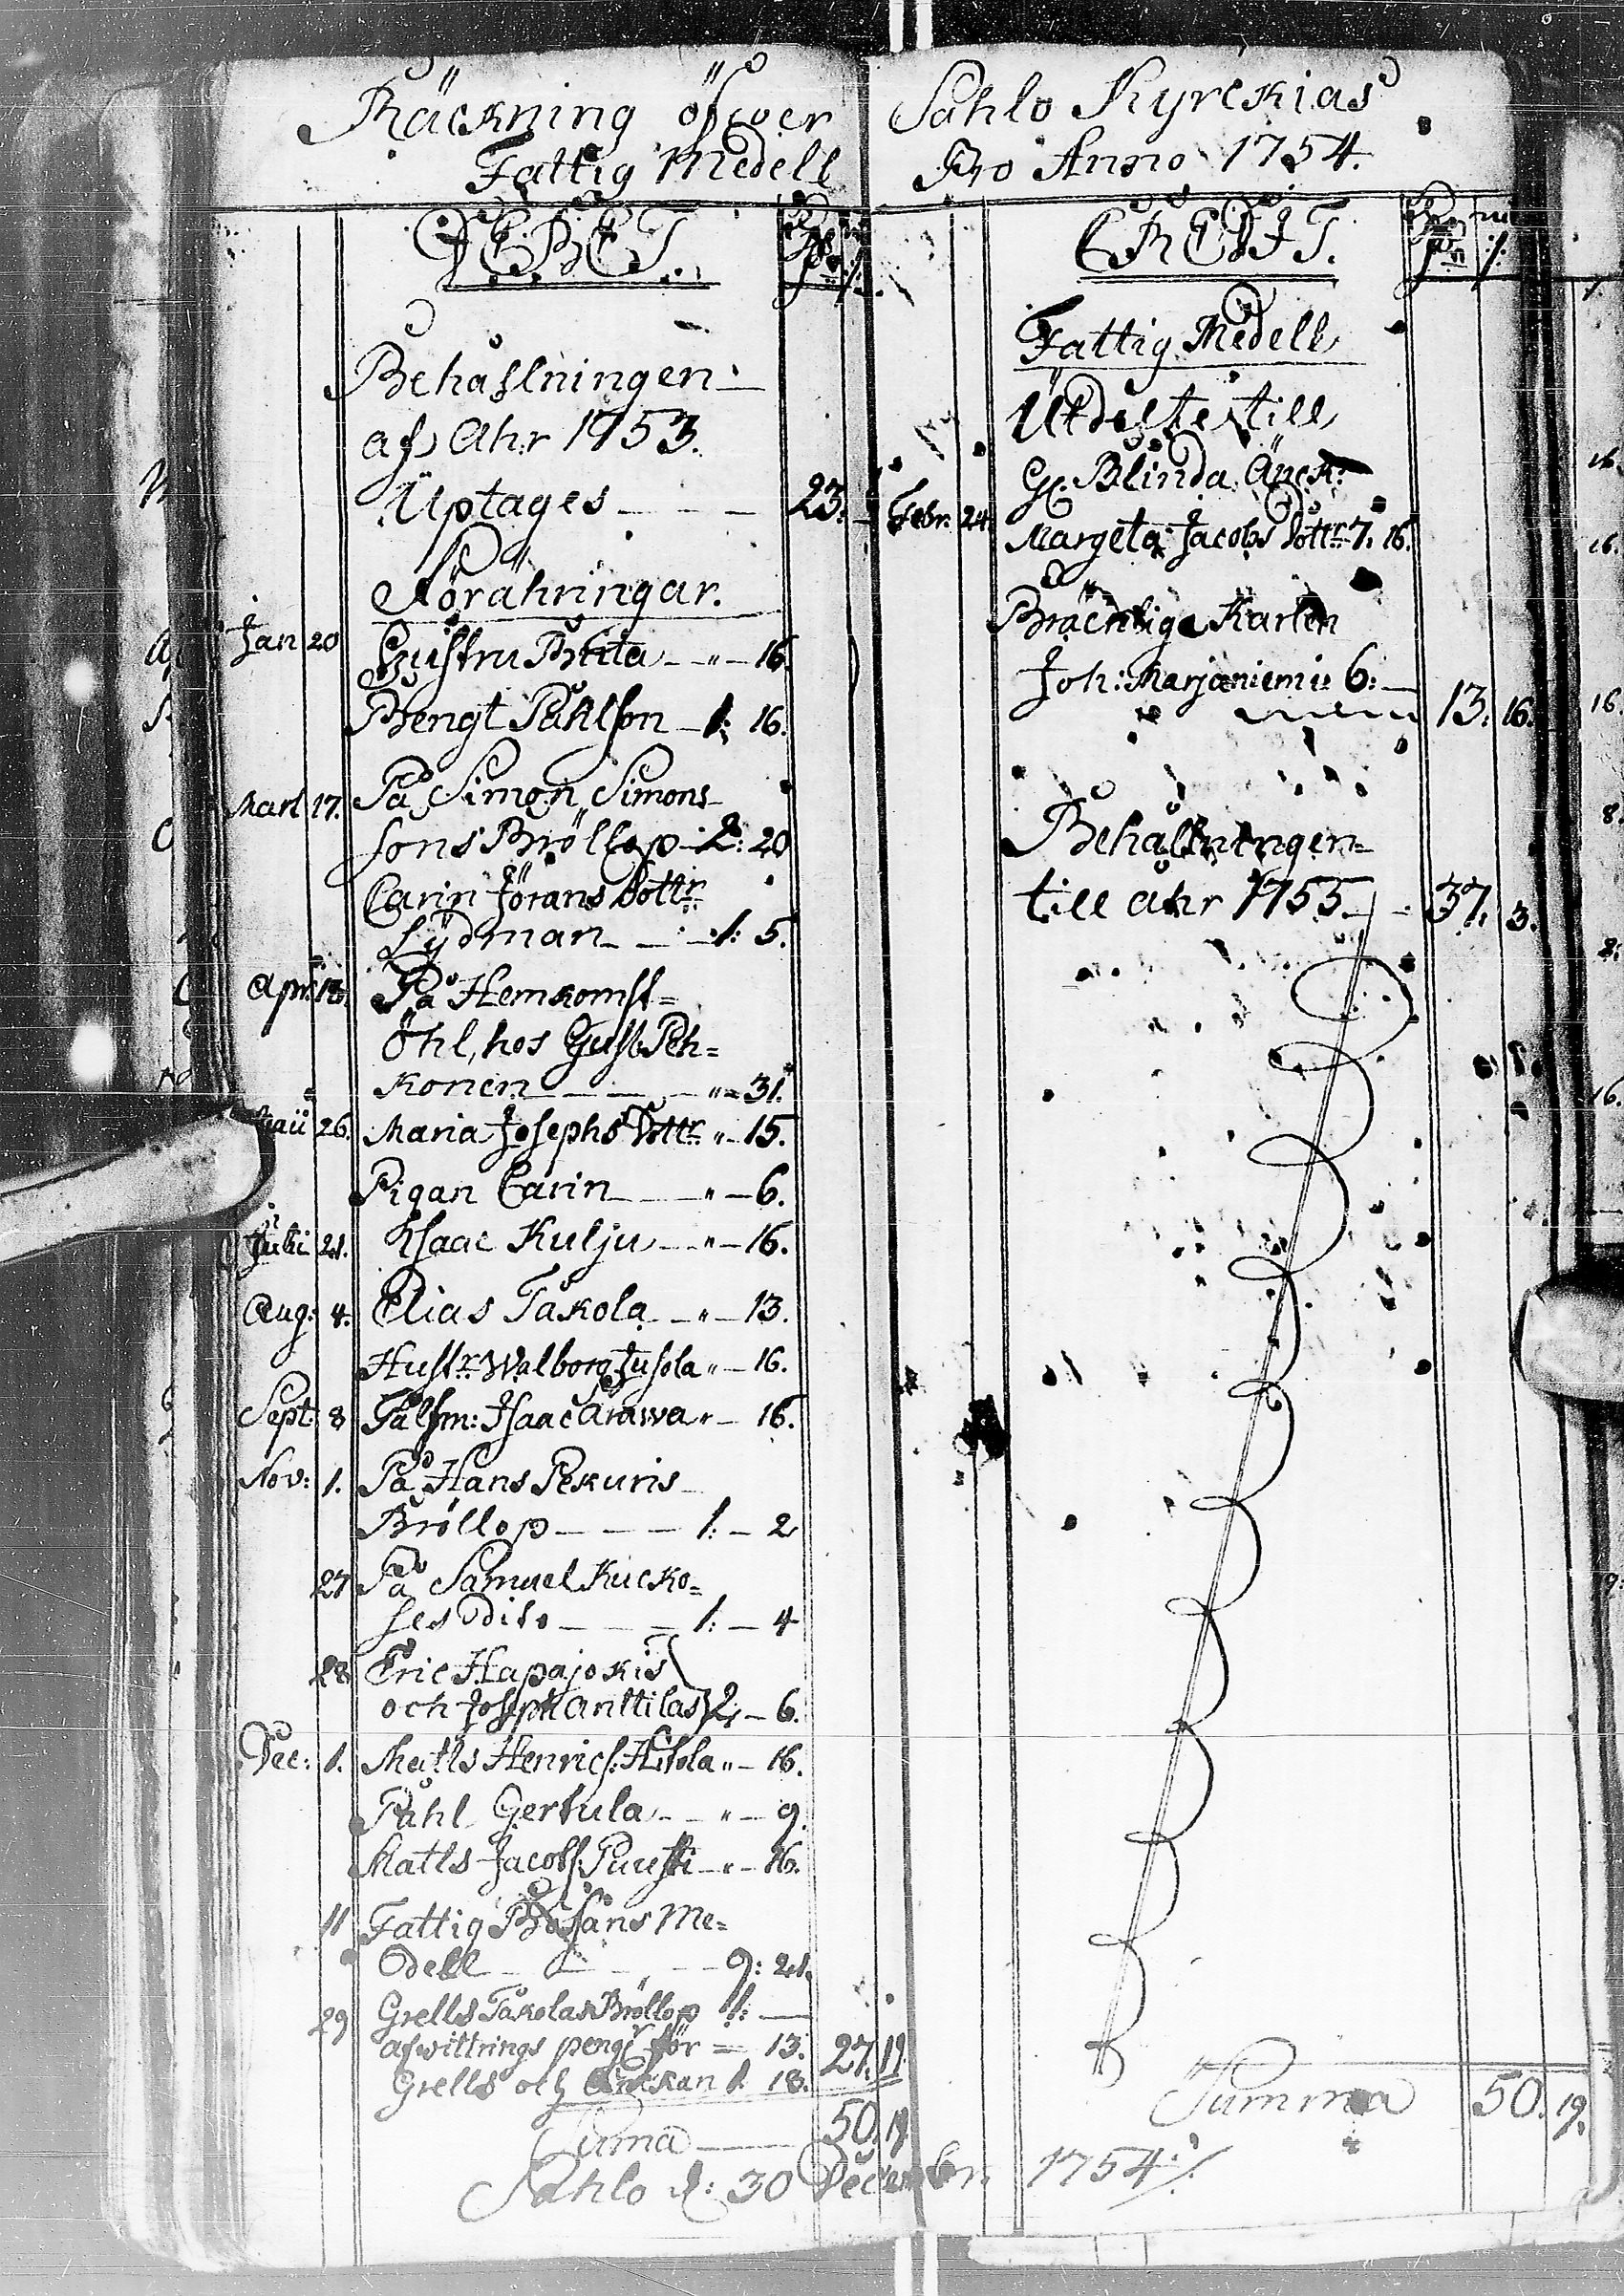 Räckning öfwer Sahlo Kyrckias
Fattig Medell Pro Anno 1754.
DEBET.
Behållningen
af Ahr 1753.
Uptages - - - 23:
Förährningar.
Jan 20 Gustru Brita - " - 16.
Bengt Påhlson - 1: 16.
Mart 17. På Simon Simons
sons Bröllop - 2: 20
Carin Jörans Dottr
Lydman - - 1: 5.
Apr: 13. På Hemkomst=
Öhl, hos Gust: Peh=
konen - - - " = 31.
Maii 26. Maria Josephs Dottr " - 15.
Pigan Carin - - " - 6.
Julii 21. Isaac Kulju - " - 16.
Aug: 4. Elias Takola - " - 13.
Hustr: Walborg Jusola " - 16.
Sept: 8 Isaac Arawa " - 16.
Nov: 1. På Hans Pekuris
Bröllop - - - 1: - 2
27 På Samuel Kucko=
ses Dito - - - 1: - 4
28 Eric Hapajokis
och Joseph Anttilas 2: - 6.
Dec: 1. Matts Henrics: Hitola " - 16.
Påhl Gertula - " - 9.
Matts Jacobs: Puusti - " - 16.
11 Fattig Bössans Me=
dell - - - 9: 21.
29 Grells Takolas Bröllop 1: -
afwittrings peng: för = 13.
Grells och Enckan 1. 18. 27. 19
Suma - 50. 19
CREDIT.
Fattig Medell
Utdeltes till
Febr: 24. Gl. Blinda Änck:
Margeta Jacobs Dottr 7: 16.
Bräcklige Karlen
Joh: Marjaniemi 6: -
13. 16.
Behållningen
till Ahr 1755 - 37. 3.
Summa 50. 19.
Sahlo d: 30 Decembr. 1754